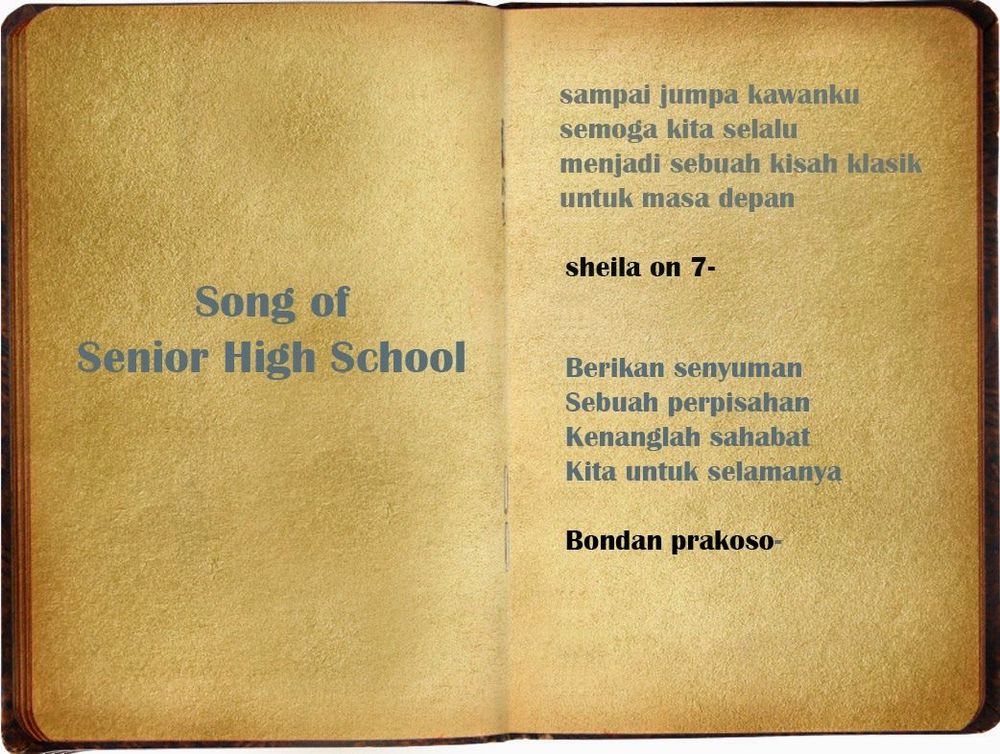 Song of
Senior High School
sampai jumpa kawanku
semoga kita selalu
menjadi sebuah kisah klasik
untuk masa depan
sheila on 7-
Berikan senyuman
Sebuah perpisahan
Kenanglah sahabat
Kita untuk selamanya
Bondan prakoso-